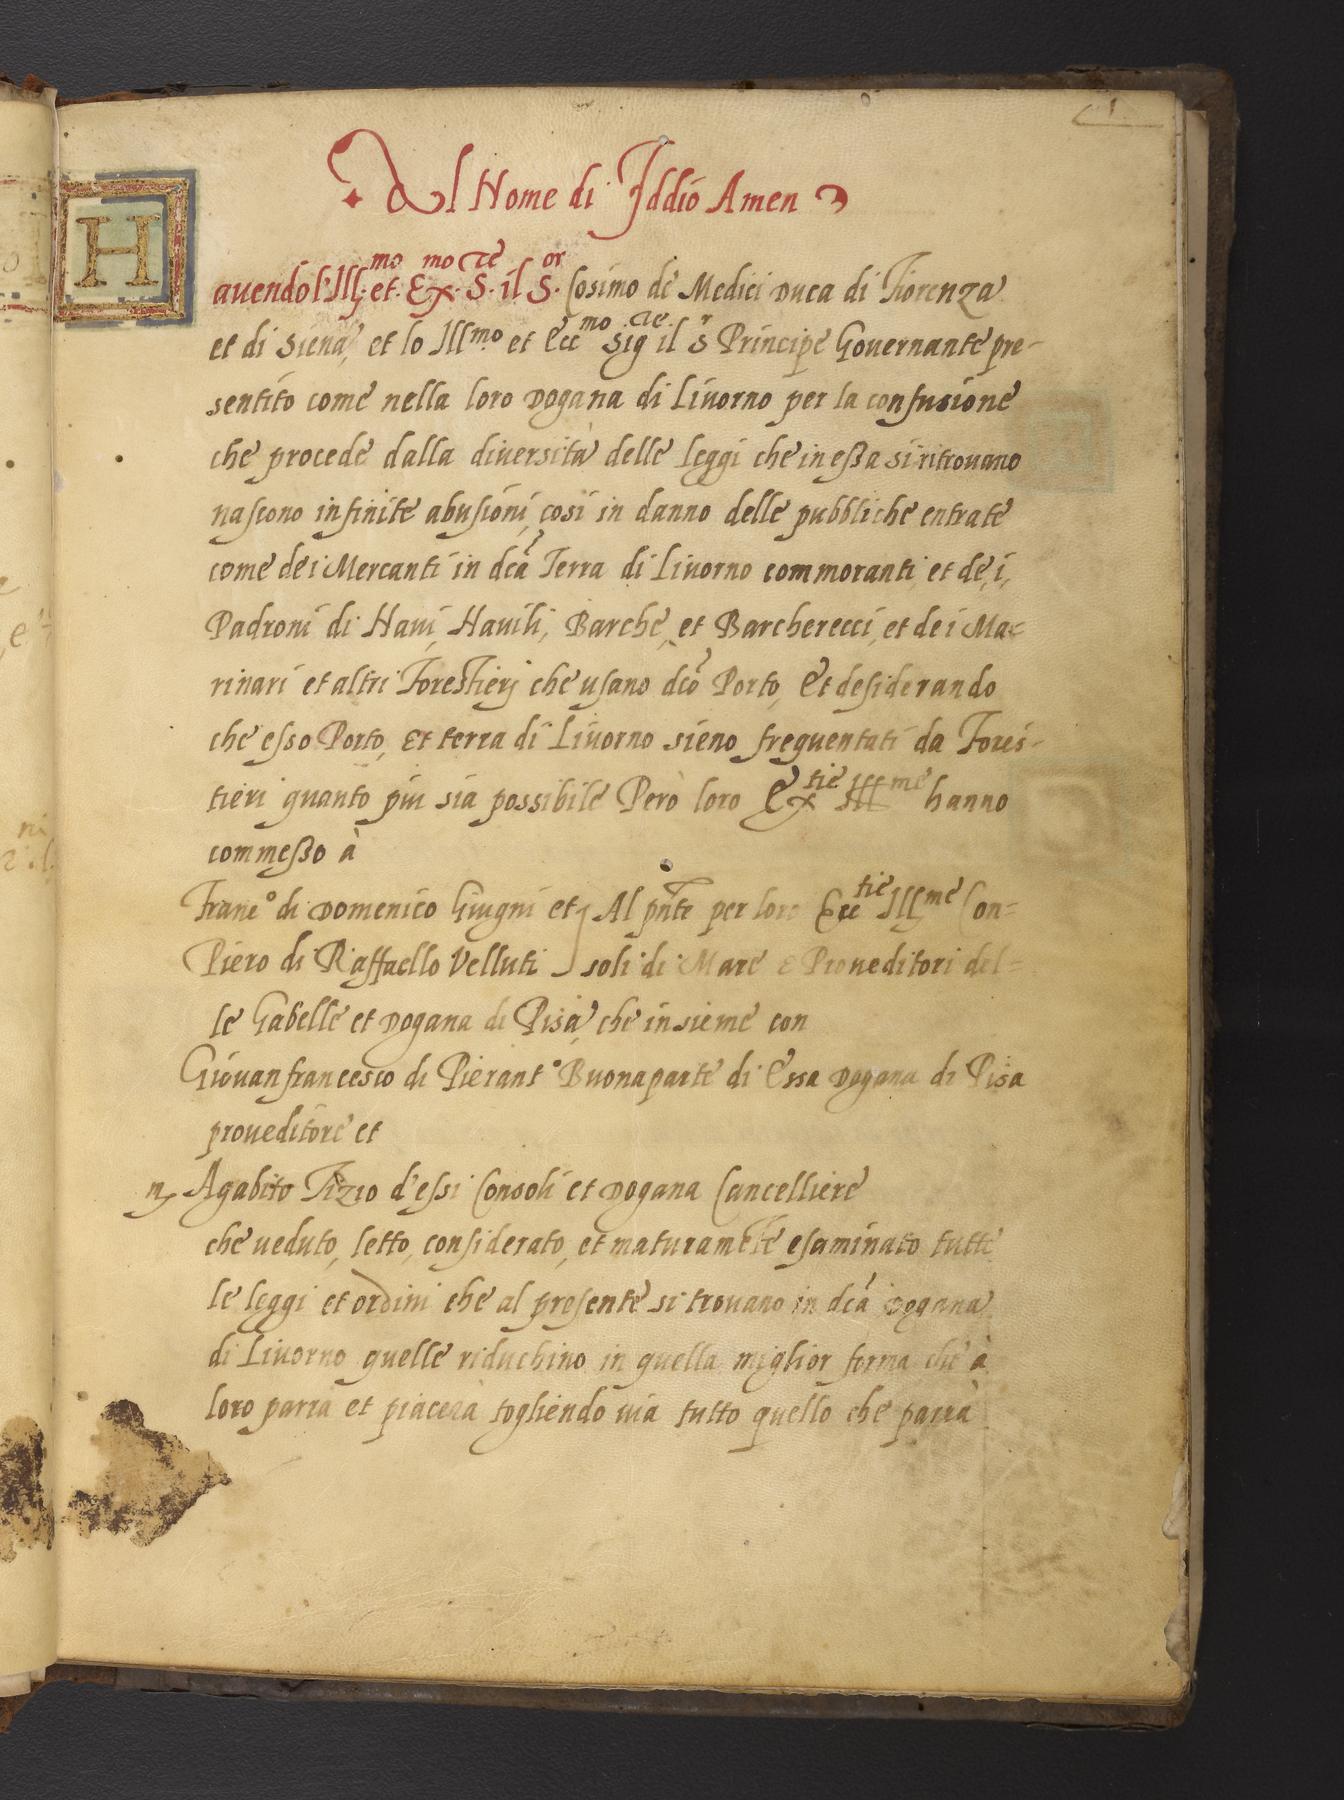 1
Al Nome di Iddio Amen
Hauendo l'Ill.mo et. Ex.mo S. il S.or Cosimo de Medici Duca di Fiorenza
et di Siena, et lo Illmo et Eccmo Sig il Sr Principe Gouernante pre-
sentito come nella loro Dogana di Liuorno per la confusione
che procede dalla diuersità delle leggi che in eßa si ritrouano
nascono infinite abusioni, cosi in danno delle pubbliche entrate
come de i Mercanti in dcã Terra di Liuorno commoranti, et de, i,
Padroni di Naui, Nauili, Barche, et Barcherecci, et de i Ma-
rinari et altri Forestierj che usano dcõ Porto, Et desiderando
che esso Porto, et terra di Liuorno sieno frequentati da Fores-
tieri quanto piu sia possibile Però loro Extie Illme hanno
commeßo à
Franc.o di Domenico Giugni et Al pñte per loro Ecctie Illme Con=
Piero di Raffaello Velluti soli di Mare e Proueditori del=
le Gabelle et Dogana di Pisa, che insieme con
Giouanfrancesco di Pierant.o Buonaparte di Essa Dogana di Pisa
proueditore et
Agabito Tizio d'essi Consoli et Dogana Cancelliere
che ueduto, letto, considerato, et maturamẽte esaminato tutte
le leggi et ordini che al presente si trouano in dcã Dogana
di Liuorno quelle riduchino in quella miglior forma che à
loro parrà et piacerà togliendo uia tutto quello che parrà